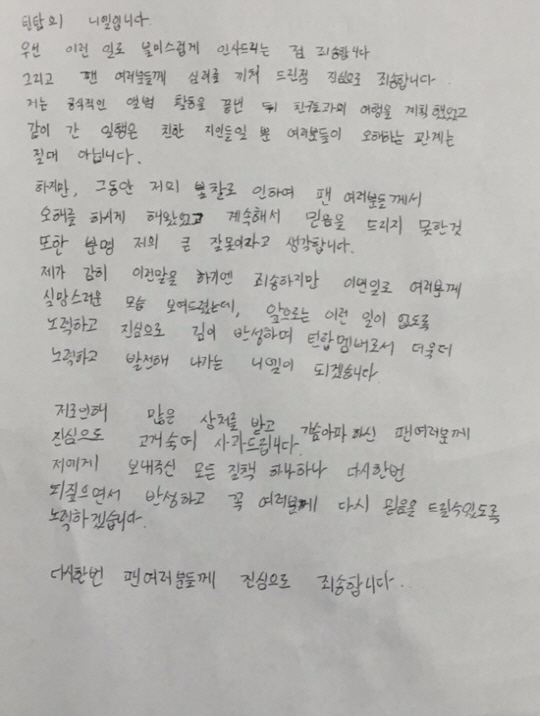 틴탑의 니엘입니다.
우선 이런 일로 불미스럽게 인사드리는 점 죄송합니다
그리고 팬 여러분들께 심려를 끼쳐 드린점 진심으로 죄송합니다.
저는 공식적인 앨범 활동을 끝낸 뒤 친구들과의 여행을 계획했었고
같이 간 일행은 친한 지인들일 뿐 여러분들이 오해하는 관계는
절대 아닙니다.
하지만, 그동안 저의 불찰로 인하여 팬 여러분들께서
오해를 하시게 해왔었고 계속해서 믿음을 드리지 못한것
또한 분명 저의 큰 잘못이라고 생각합니다.
제가 감히 이런말을 하기엔 죄송하지만 이번일로 여러분께
실망스러운 모습 보여드렸는데, 앞으로는 이런 일이 없도록
노력하고 진심으로 깊이 반성하며 틴탑멤버로서 더욱더
노력하고 발전해 나가는 니엘이 되겠습니다
저로인해 많은 상처를 받고 가슴아파 하신 팬여러분께
진심으로 고개숙여 사과드립니다.
저에게 보내주신 모든 질책 하나하나 다시한번
되짚으면서 반성하고 꼭 여러분께 다시 믿음을 드릴수있도록
노력하겠습니다.
다시한번 팬여러분들께 진심으로 죄송합니다.